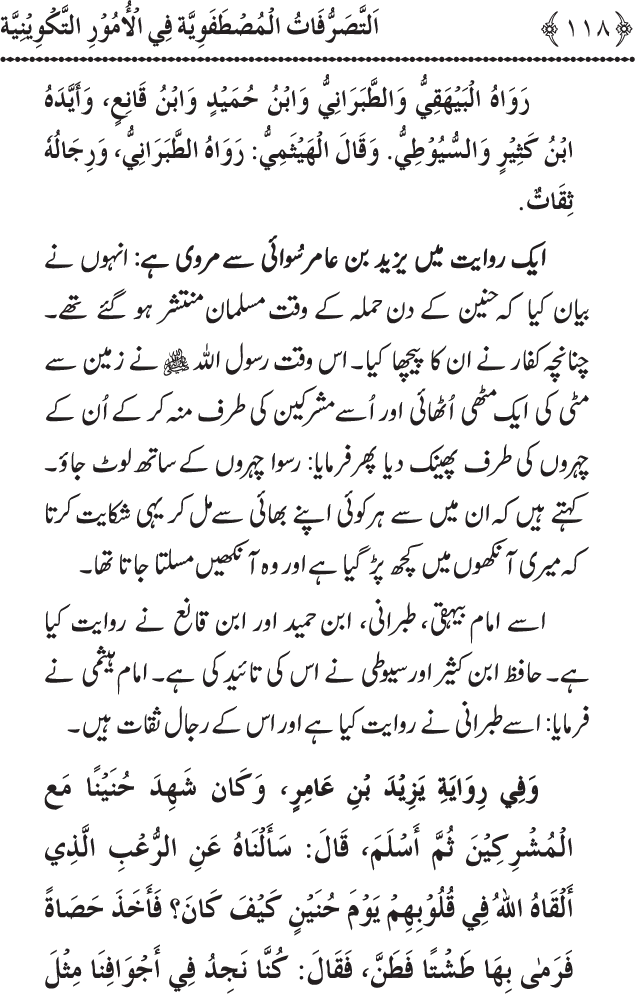 ﴿۱۱۸﴾ اَلتَّصَرُّفَاتُ الْمُصْطَفَوِيَّة فِي الْأُمُوْرِ التَّكْوِيْنِيَّة
رَوَاهُ الْبَيْهَقِيُّ وَالطَّبَرَانِيُّ وَابْنُ حُمَيْدٍ وَابْنُ قَانِعٍ، وَأَيَّدَهُ
ابْنُ كَثِيْرٍ وَالسُّيُوْطِيُّ. وَقَالَ الْهَيْثَمِيُّ: رَوَاهُ الطَّبَرَانِيُّ، وَرِجَالُهُ
ثِقَاتٌ.
ایک روایت میں یزید بن عامر سُوائی سے مروی ہے: انہوں نے
بیان کیا کہ حنین کے دن حملہ کے وقت مسلمان منتشر ہو گئے تھے۔
چنانچہ کفار نے ان کا پیچھا کیا۔ اس وقت رسول اللہ ﷺ نے زمین سے
مٹی کی ایک مٹھی اُٹھائی اور اُسے مشرکین کی طرف منہ کر کے اُن کے
چہروں کی طرف پھینک دیا پھر فرمایا: رسوا چہروں کے ساتھ لوٹ جاؤ۔
کہتے ہیں کہ ان میں سے ہر کوئی اپنے بھائی سے مل کر یہی شکایت کرتا
کہ میری آنکھوں میں کچھ پڑ گیا ہے اور وہ آنکھیں مسلتا جاتا تھا۔
اسے امام بیہقی، طبرانی، ابن حمید اور ابن قانع نے روایت کیا
ہے۔ حافظ ابن کثیر اور سیوطی نے اس کی تائید کی ہے۔ امام ہیثمی نے
فرمایا: اسے طبرانی نے روایت کیا ہے اور اس کے رجال ثقات ہیں۔
وَفِي رِوَايَةِ يَزِيْدَ بْنِ عَامِرٍ، وَكَان شَهِدَ حُنَيْنًا مَع
الْمُشْرِكِيْنَ ثُمَّ أَسْلَمَ، قَالَ: سَأَلْنَاهُ عَنِ الرُّعْبِ الَّذِي
أَلْقَاهُ اللهُ فِي قُلُوْبِهِمْ يَوْمَ حُنَيْنٍ كَيْفَ كَانَ؟ فَأَخَذَ حَصَاةً
فَرَمٰى بِهَا طَشْتًا فَطَنَّ، فَقَالَ: كُنَّا نَجِدُ فِي أَجْوَافِنَا مِثْلَ